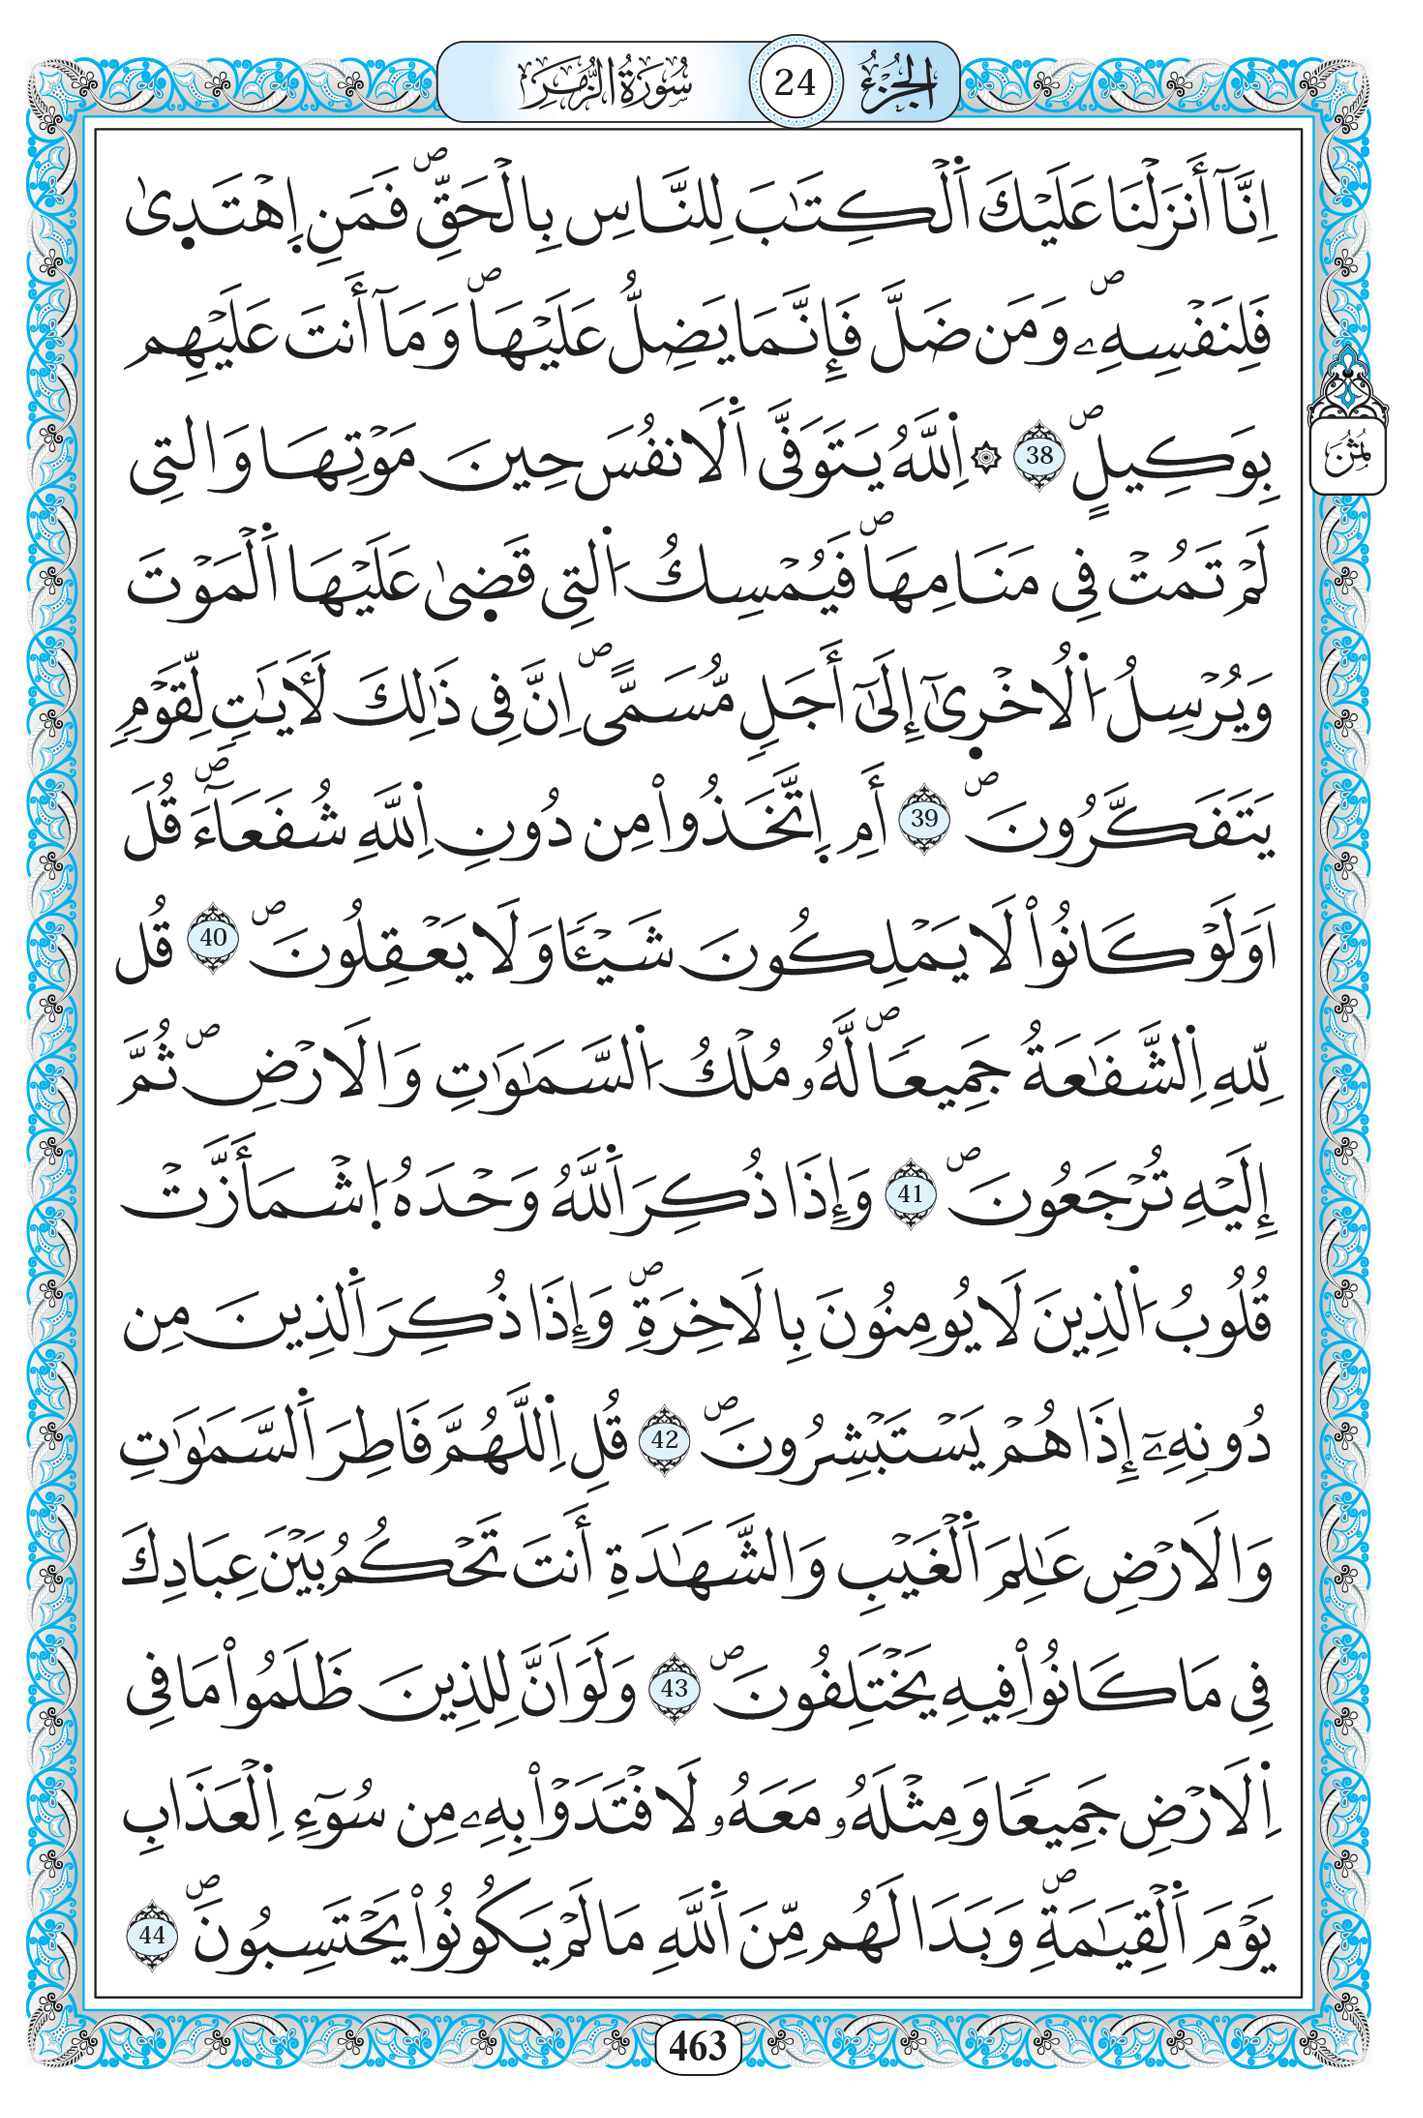 سُورَةُ الزُّمَر 24 الجُزْءُ
اِنَّآ أَنزَلْنَا عَلَيْكَ اَ۬لْكِتَٰبَ لِلنَّاسِ بِالْحَقِّۖ فَمَنِ اِ۪هْتَد۪ىٰ
فَلِنَفْسِهِۦۖ وَمَن ضَلَّ فَإِنَّمَا يَضِلُّ عَلَيْهَاۖ وَمَآ أَنتَ عَلَيْهِم
بِوَكِيلٍۖ 38 ۞ اِ۬للَّهُ يَتَوَفَّى اَ۬لَانفُسَ حِينَ مَوْتِهَا وَالتِى
ثُمُنُ
لَمْ تَمُتْ فِى مَنَامِهَاۖ فَيُمْسِكُ اُ۬لتِى قَض۪ىٰ عَلَيْهَا اَ۬لْمَوْتَ
وَيُرْسِلُ اُ۬لُاخْر۪ىٰٓ إِلَىٰٓ أَجَلٍ مُّسَمًّىۖ اِنَّ فِى ذَٰلِكَ لَأٓيَٰتٍ لِّقَوْمٍ
يَتَفَكَّرُونَۖ 39 أَمِ اِ۪تَّخَذُواْ مِن دُونِ اِ۬للَّهِ شُفَعَآءَۖ قُلَ
اَوَلَوْ كَانُواْ لَا يَمْلِكُونَ شَيْـَٔا وَلَا يَعْقِلُونَۖ 40 قُل
لِّلهِ اِ۬لشَّفَٰعَةُ جَمِيعاۖ لَّهُۥ مُلْكُ اُ۬لسَّمَٰوَٰتِ وَالَارْضِۖ ثُمَّ
إِلَيْهِ تُرْجَعُونَۖ 41 وَإِذَا ذُكِرَ اَ۬للَّهُ وَحْدَهُ اُ۪شْمَأَزَّتْ
قُلُوبُ اُ۬لذِينَ لَا يُومِنُونَ بِالَاخِرَةِۖ وَإِذَا ذُكِرَ اَ۬لذِينَ مِن
دُونِهِۦٓ إِذَا هُمْ يَسْتَبْشِرُونَۖ 42 قُلِ اِ۬للَّهُمَّ فَاطِرَ اَ۬لسَّمَٰوَٰتِ
وَالَارْضِ عَٰلِمَ اَ۬لْغَيْبِ وَالشَّهَٰدَةِ أَنتَ تَحْكُمُ بَيْنَ عِبَادِكَ
فِى مَا كَانُواْ فِيهِ يَخْتَلِفُونَۖ 43 وَلَوَ اَنَّ لِلذِينَ ظَلَمُواْ مَا فِى
اِ۬لَارْضِ جَمِيعا وَمِثْلَهُۥ مَعَهُۥ لَافْتَدَوْاْ بِهِۦ مِن سُوٓءِ اِ۬لْعَذَابِ
يَوْمَ اَ۬لْقِيَٰمَةِۖ وَبَدَا لَهُم مِّنَ اَ۬للَّهِ مَا لَمْ يَكُونُواْ يَحْتَسِبُونَۖ 44
463